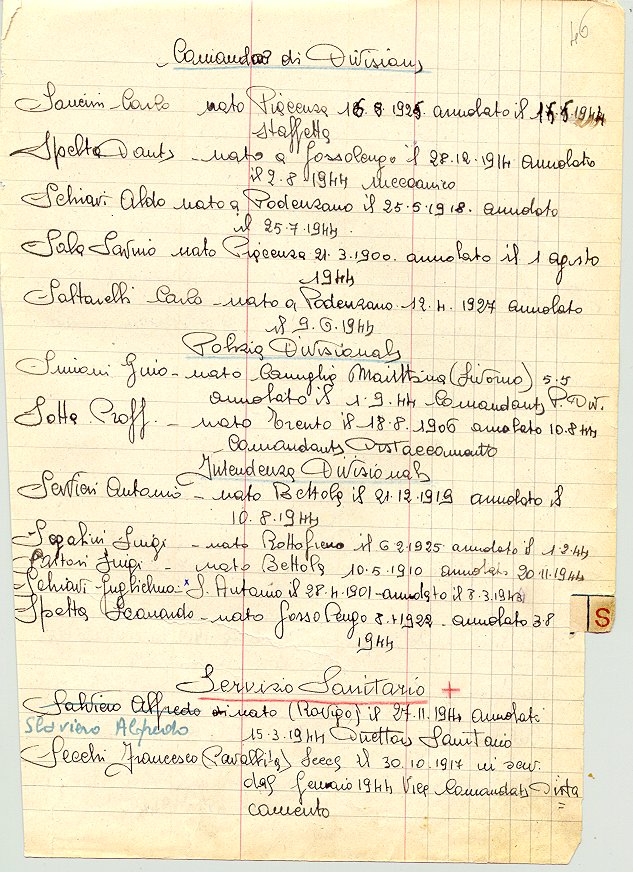 46
Comandos di Divisione
Sancini Carlo nato Piacenza 16 8 1925 annolato il 15.5.1944
staffetta
Spelta Dante - nato a Gossolengo il 28.12.1914 annolato
il 2.8.1944 meccanico
Schiavi Aldo nato a Podenzano il 25.5.1918. annolato
il 25.7.1944.
Sala Savino nato Piacenza 21.3.1900. annolato il 1 agosto
1944
Sattarelli Carlo - nato a Podenzano. 12.4.1927 annolato
il 9.6.1944
Polizia Divisionale
Simoni Gino - nato Marittima (Livorno) 5.5
annolato il 1.9.44 Comandante P. Div.
Sotta Proff. - nato Trento il 18.8.1906 annolato 10.8.44
Comandante Distaccamento
Intendenza Divisionale
Servieri Antonio - nato Bettola il 21.12.1919 annolato il
10.8.1944
Segalini Luigi - nato Rottofreno il 6.2.1925 annolato il 1.2.44
Sartori Luigi - nato Bettola 10.5.1910 annolato 20.11.1944
Schiavi Guglielmo - x S. Antonio il 28.4.1901 - annolato il 8.3.1943
Spelta Leonardo - nato Gossolengo 8.1.1922 - annolato 3.8
1944
S
Servizio Sanitario +
Salviero Alfredo di nato (Rovigo) il 27.11.1944 annolato
Slaviero Alfredo
15.3.1944 Direttore Sanitario
Secchi Francesco (Cavallita) Secch il 30.10.1917 in serv.
dal Gennaio 1944 Vice Comandante Dista
camento